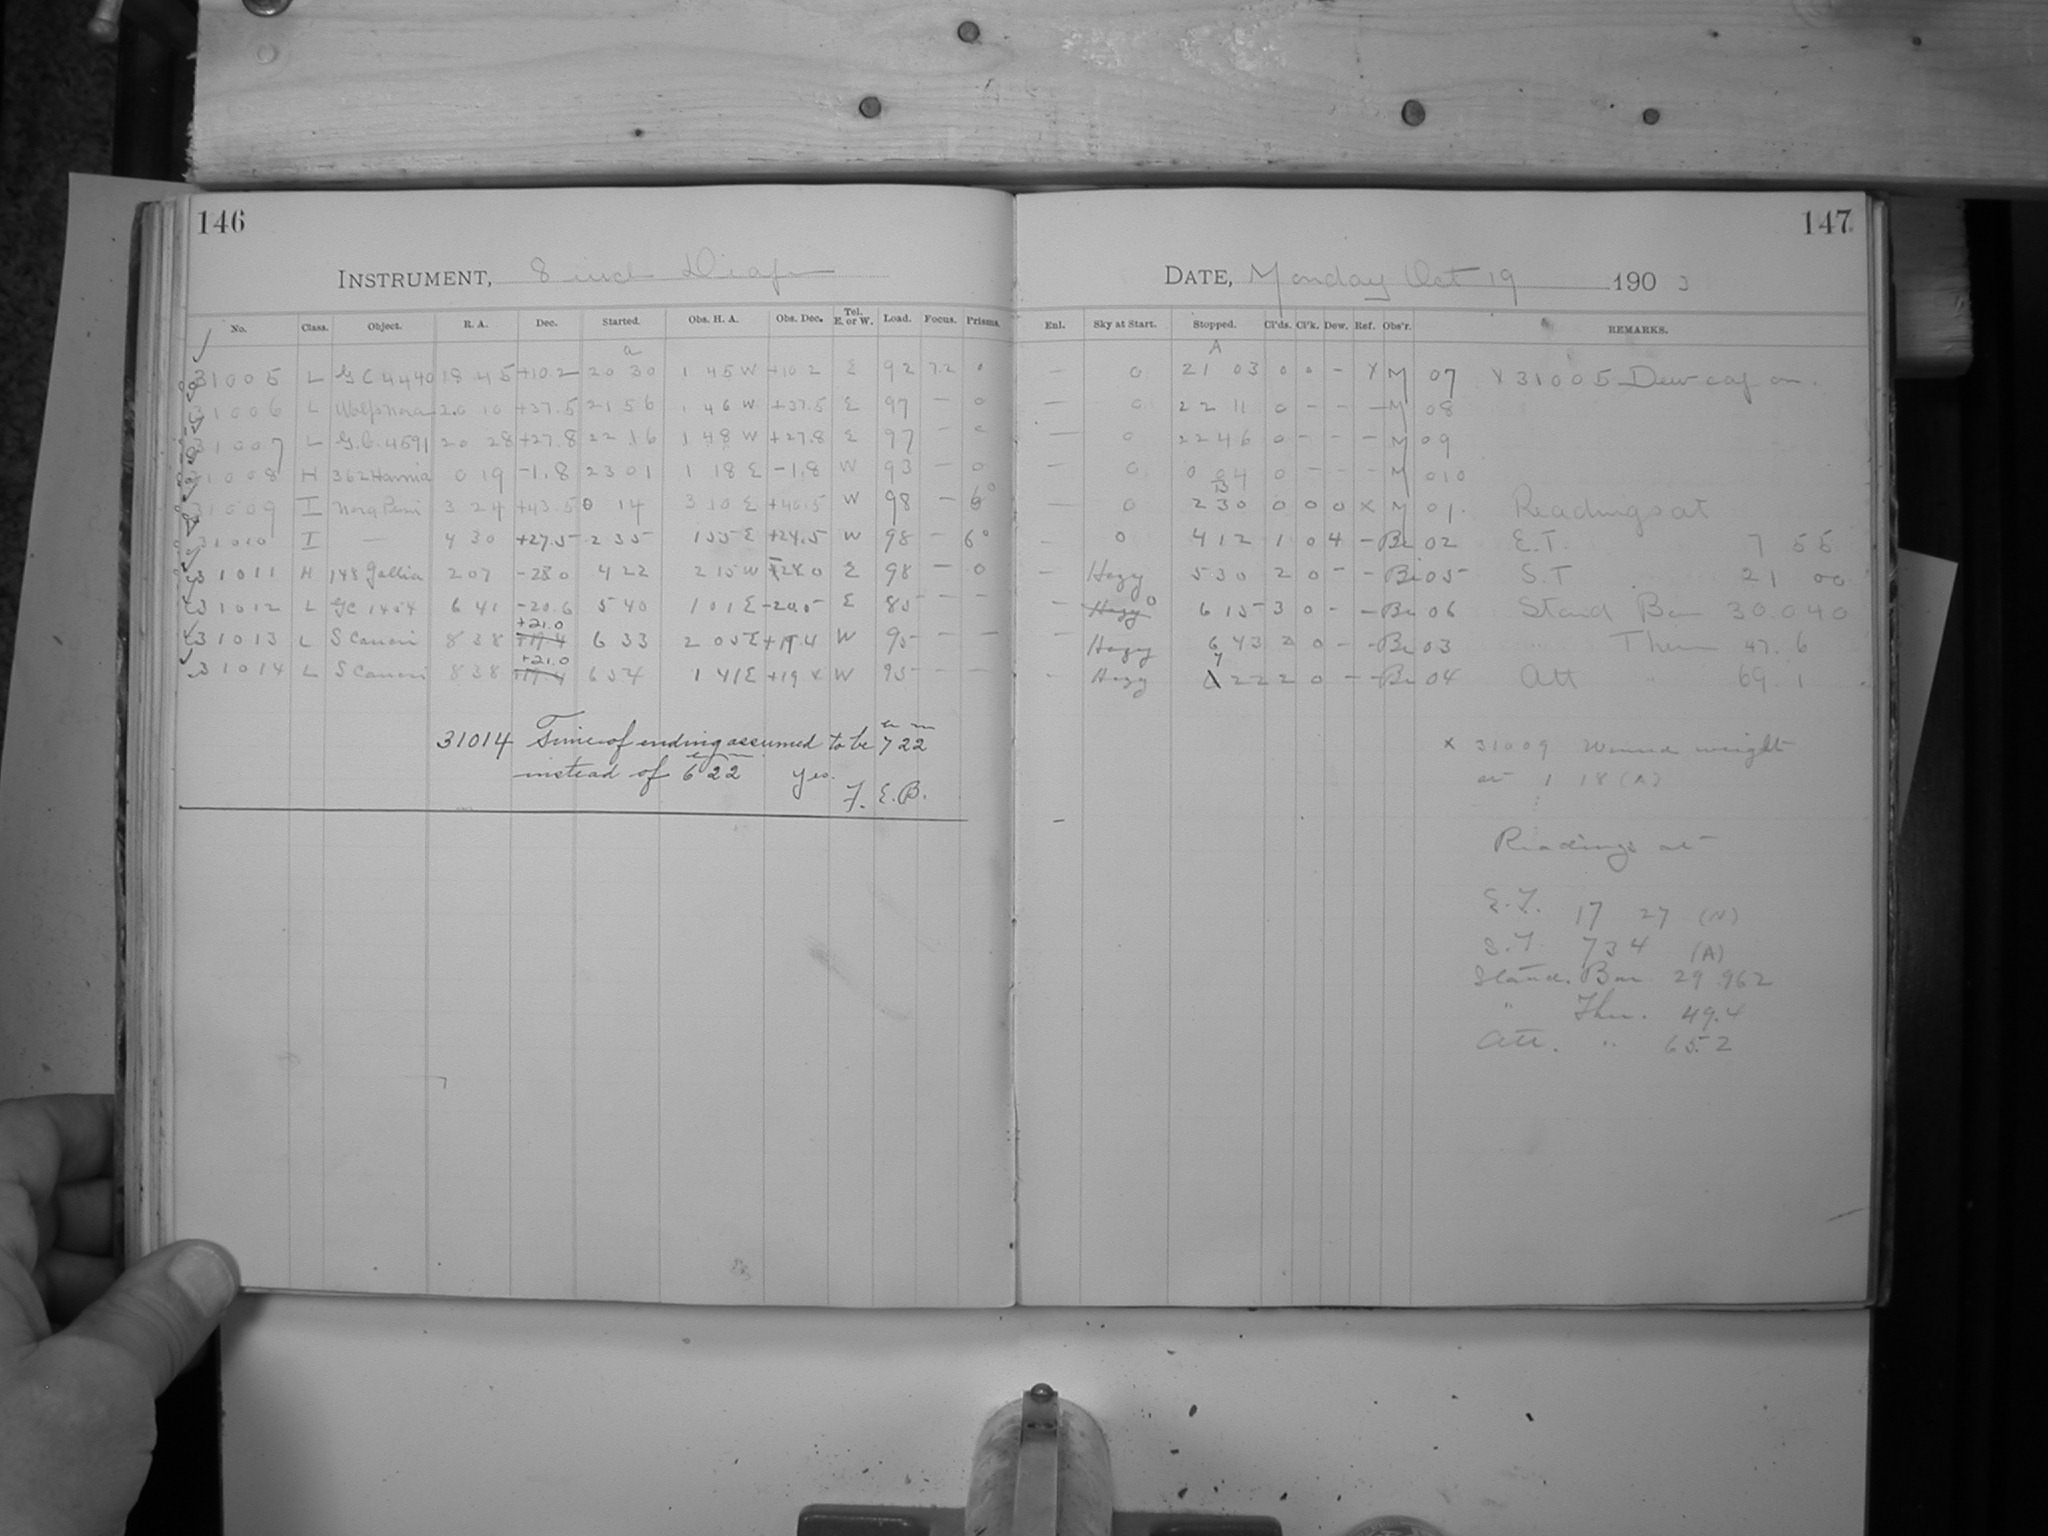 146
INSTRUMENT, 8 inch Draper
No. Class. Object. R. A. Dec. Started. Obs. H. A. Obs. Dec. Tel. E. or W. Load. Focus. Prisms.
a
31005 L G C 4440 18 45 +10.2 20 30 1 45 W +10 2 E 92 7.2 0
31006 L 20 10 +37.5 21 56 1 46 W +37.5 E 97 – 0
31007 L G.C. 4591 20 28 +27.8 22 16 1 48 W +27.8 E 97 – 0
31008 H 362 Havnia 0 19 -1.8 23 01 1 18 E -1.8 W 93 – 0
31009 I Nova Persi 3 24 +43.5 0 14 3 10 E W 98 – 6°
31010 I — 4 30 +27.5 2 35 1 55 E +24.5 W 98 – 6°
31011 H 148 Gallia 2 07 -28 0 4 22 2 15 W -28.0 E 98 – 0
31012 L GC 1454 6 41 -20.6 5 40 1 01 E -20.5 E 85 – –
+21.0
31013 L S Cancri 8 38 +19.4 6 33 2 05 E +19.4 W 95 – –
+21.0
31014 L S Cancri 8 38 +19.4 6 54 1 41 E +19 4 W 95 – –
31014 Time of ending assumed to be 7 h 22 m
instead of 6 h 22 m yes.
F. E. B.
147
DATE, Monday Oct 19 1903
Enl. Sky at Start. Stopped. Cl'ds. Cl'k. Dew. Ref. Obs'r. REMARKS.
A
– 0 21 03 0 0 – X M 07 X 31005 Dew cap on.
– 0 22 11 0 – – – M 08
– 0 22 46 0 – – – M 09
– 0 0 04 0 – – – M 010
13
– 0 2 30 0 0 0 X M 01. Readings at
– 0 4 12 1 0 4 – Be 02 E.T. 7 55
– Hazy 5 30 2 0 – – Be 05 S.T 21 00
Hazy 0 6 15 3 0 – – Be 06 Stand Bar 30.040
– Hazy 6 43 2 0 – – Be 03 " Ther 47.6
7
– Hazy 22 2 0 – – Be 04 Att " 69.1
X 31009 Wound weight
at 1 18 (A)
Readings at
E.T. 17 27 (N)
S.T. 7 34 (A)
Stand. Bar 29 962
" Ther. 49.4
Att. " 65.2